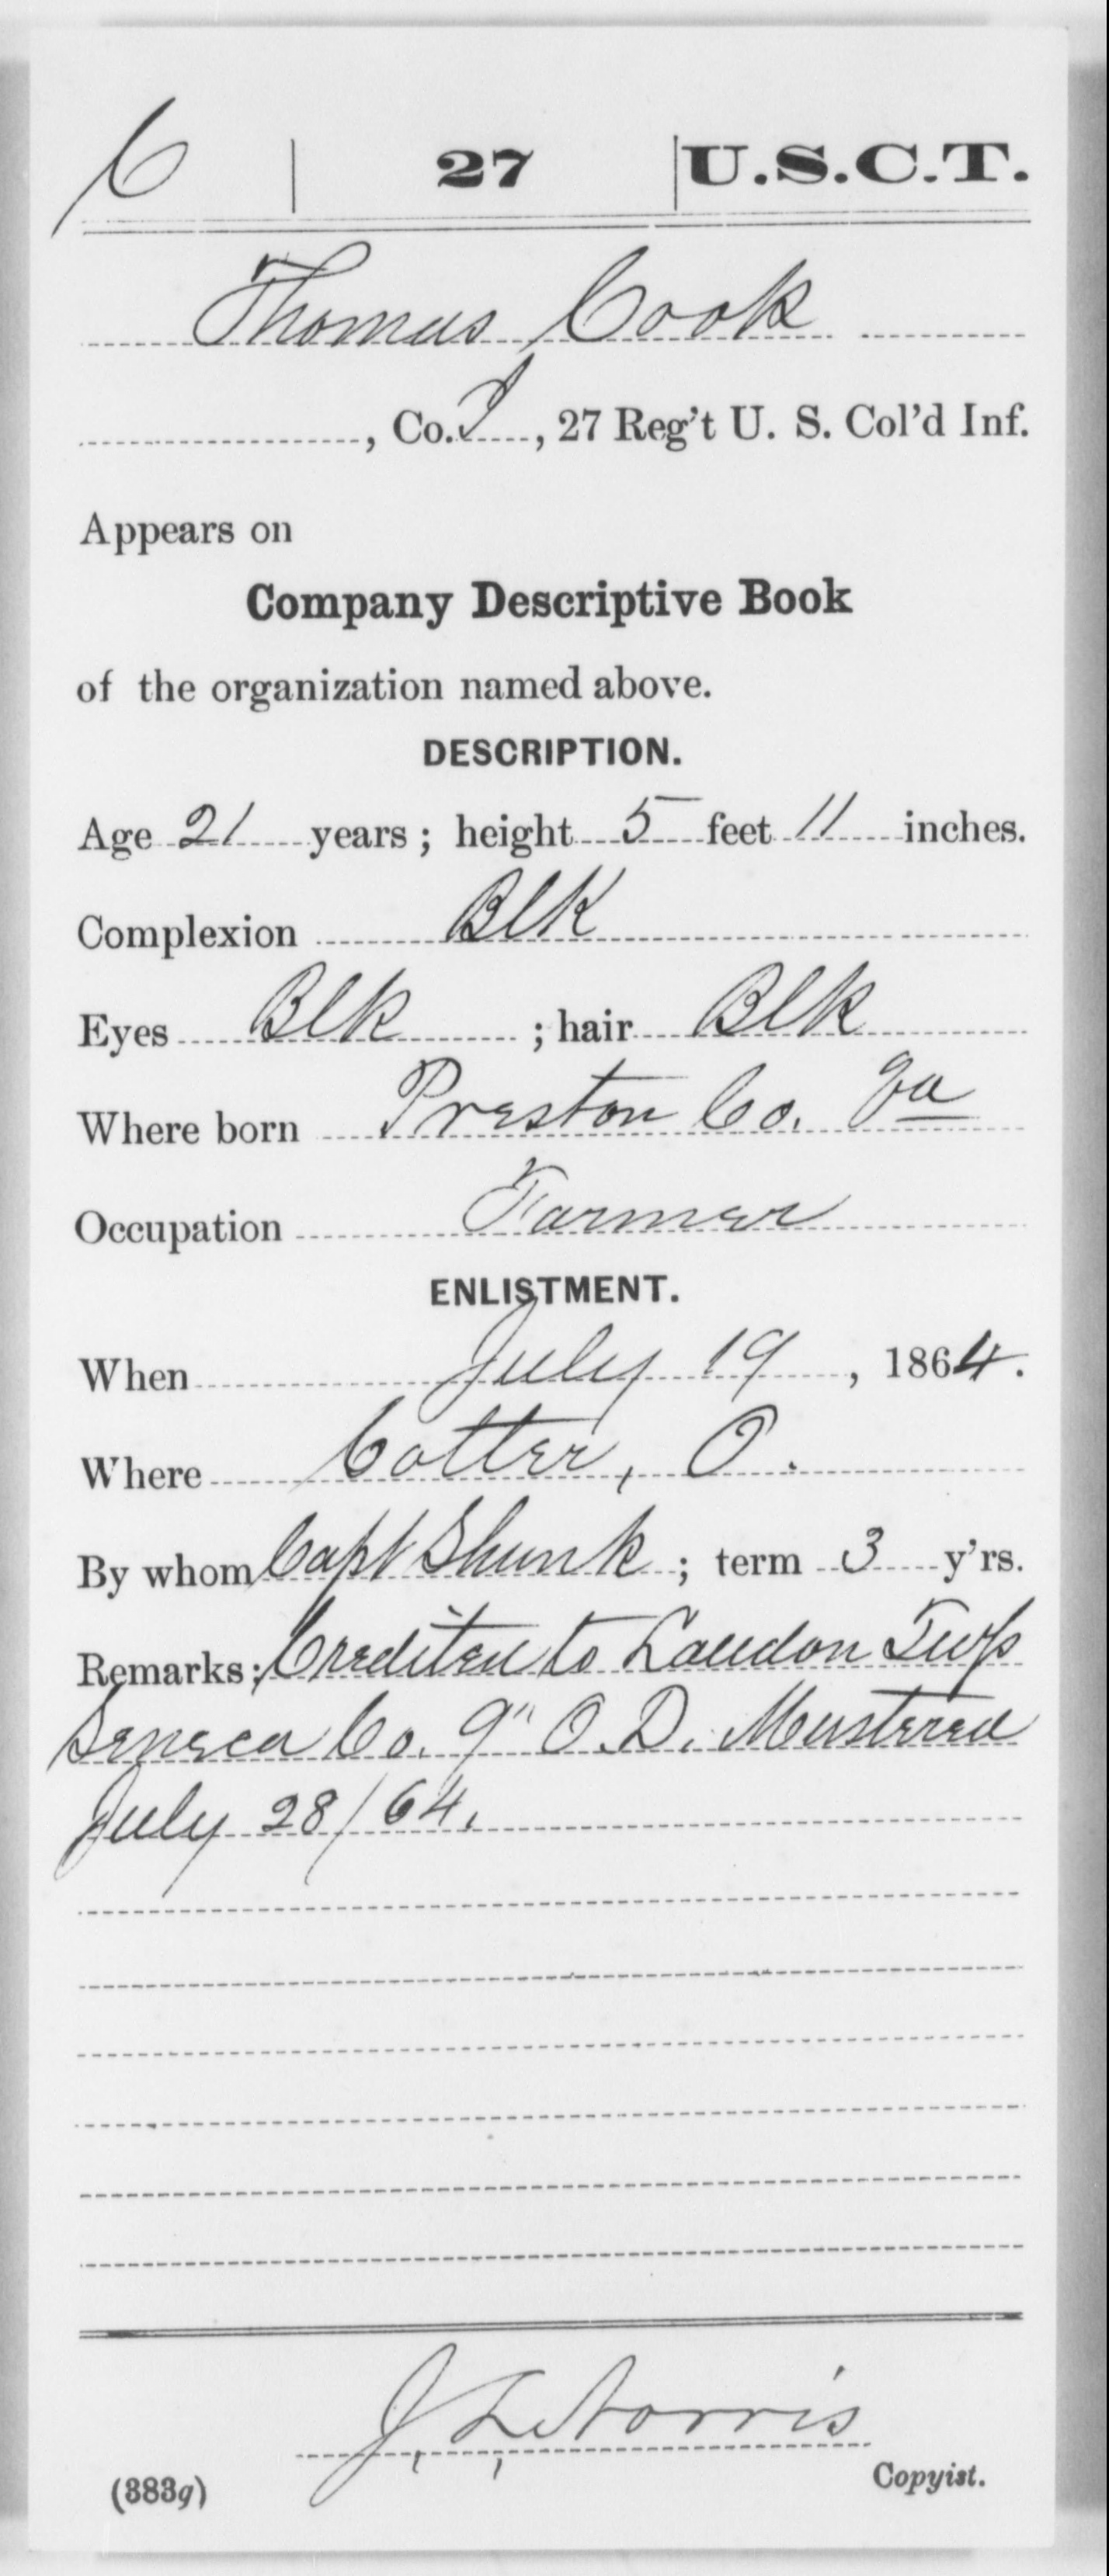 C | 27 | U.S.C.T.
Thomas Cook
, Co. I, 27 Reg't U. S. Col'd Inf.
Appears on
Company Descriptive Book
of the organization named above.
DESCRIPTION.
Age 21 years; height 5 feet 11 inches.
Complexion Blk
Eyes Blk ; hair Blk
Where born Preston Co. Va
Occupation Farmer
ENLISTMENT.
When July 19, 1864.
Where Cotter, O.
By whom Capt Shunk; term 3 y'rs.
Remarks: Credited to Loudon Twp
Seneca Co. 9" O. D. Mustered
July 28/64.
J. L. Norris
(383g) Copyist.